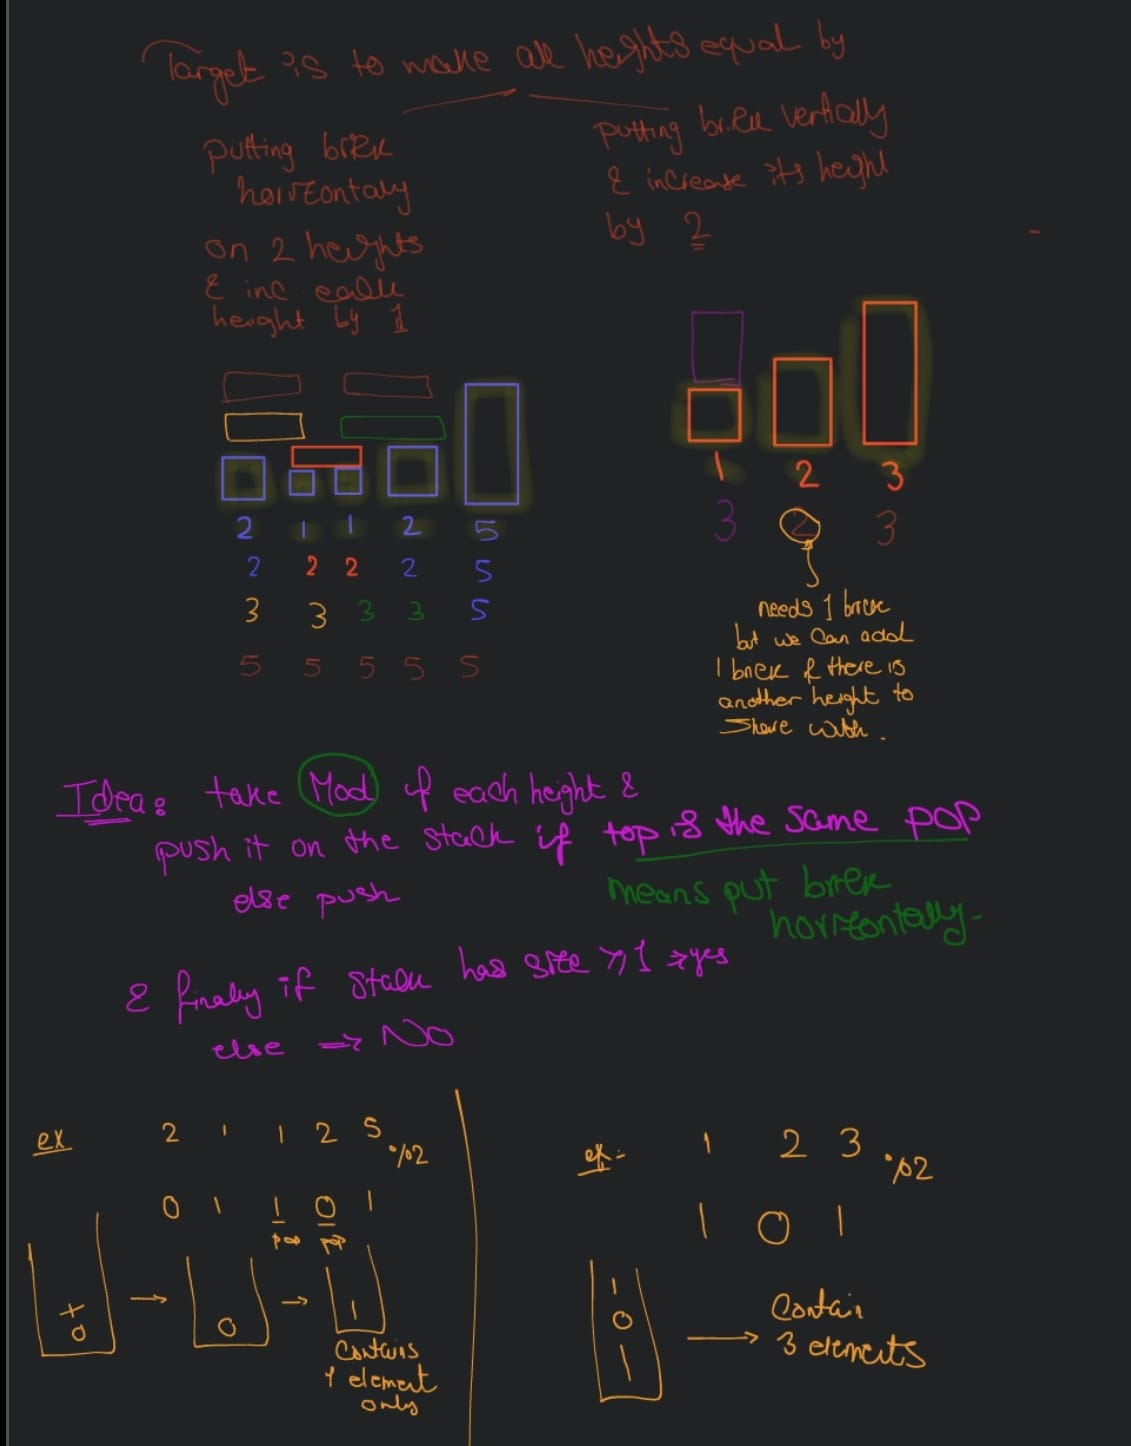 Target is to make all heights equal by
putting brick
horizontaly
on 2 heights
& inc. each
height by 1
putting brick vertically
& increase its height
by 2
2 1 1 2 5
2 2 2 2 5
3 3 3 3 5
5 5 5 5 5
1 2 3
3 2 3
needs 1 brick
but we can add
1 brick if there is
another height to
share with.
Idea: take Mod of each height &
push it on the stack if top is the same pop
else push
means put brick
horizontally-
& finaly if stack has size >, 1 => yes
else => No
ex 2 1 1 2 5 %2
0 1 1 0 1
pop pop
1
0
0
1
Contains
1 element
only
ex:- 1 2 3 %2
1 0 1
1
0
1
Contain
3 elements